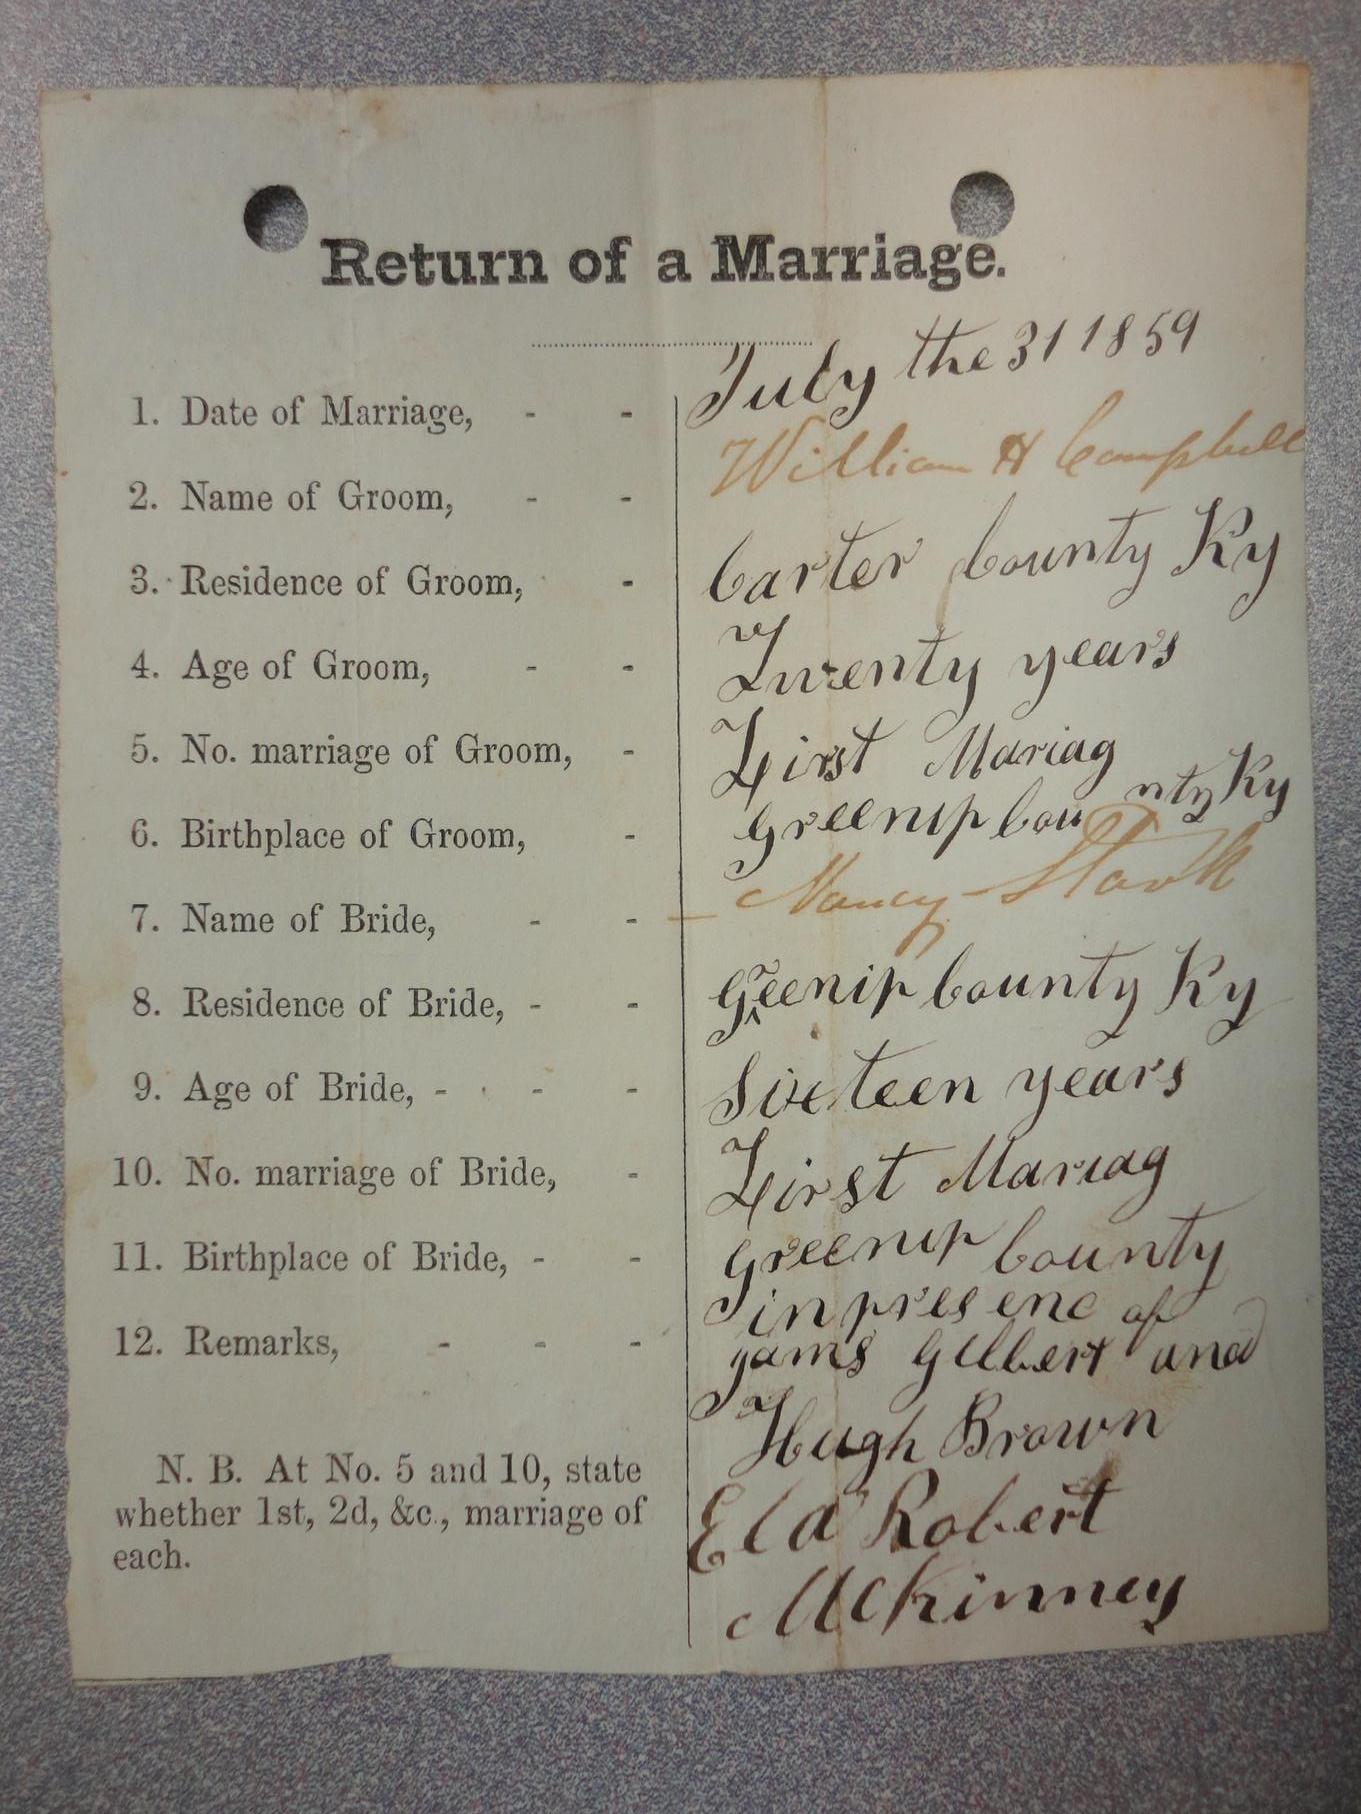 Return of a Marriage.
1. Date of Marriage, - - July the 31 1859
2. Name of Groom, - - William H Campbell
3. Residence of Groom, - Carter County Ky
4. Age of Groom, - - Twenty years
5. No. marriage of Groom, - First Mariag
6. Birthplace of Groom, - Greenup County Ky
7. Name of Bride, - - Nancy Stark
8. Residence of Bride, - - Greenip County Ky
9. Age of Bride, - - - Sixteen years
10. No. marriage of Bride, - First Mariag
11. Birthplace of Bride, - - Greenup County
12. Remarks, - - - in presenc of
jams Gilbert and
Hugh Brown
N. B. At No. 5 and 10, state
whether 1st, 2d, &c., marriage of
each.
Eld Robert
McKinney